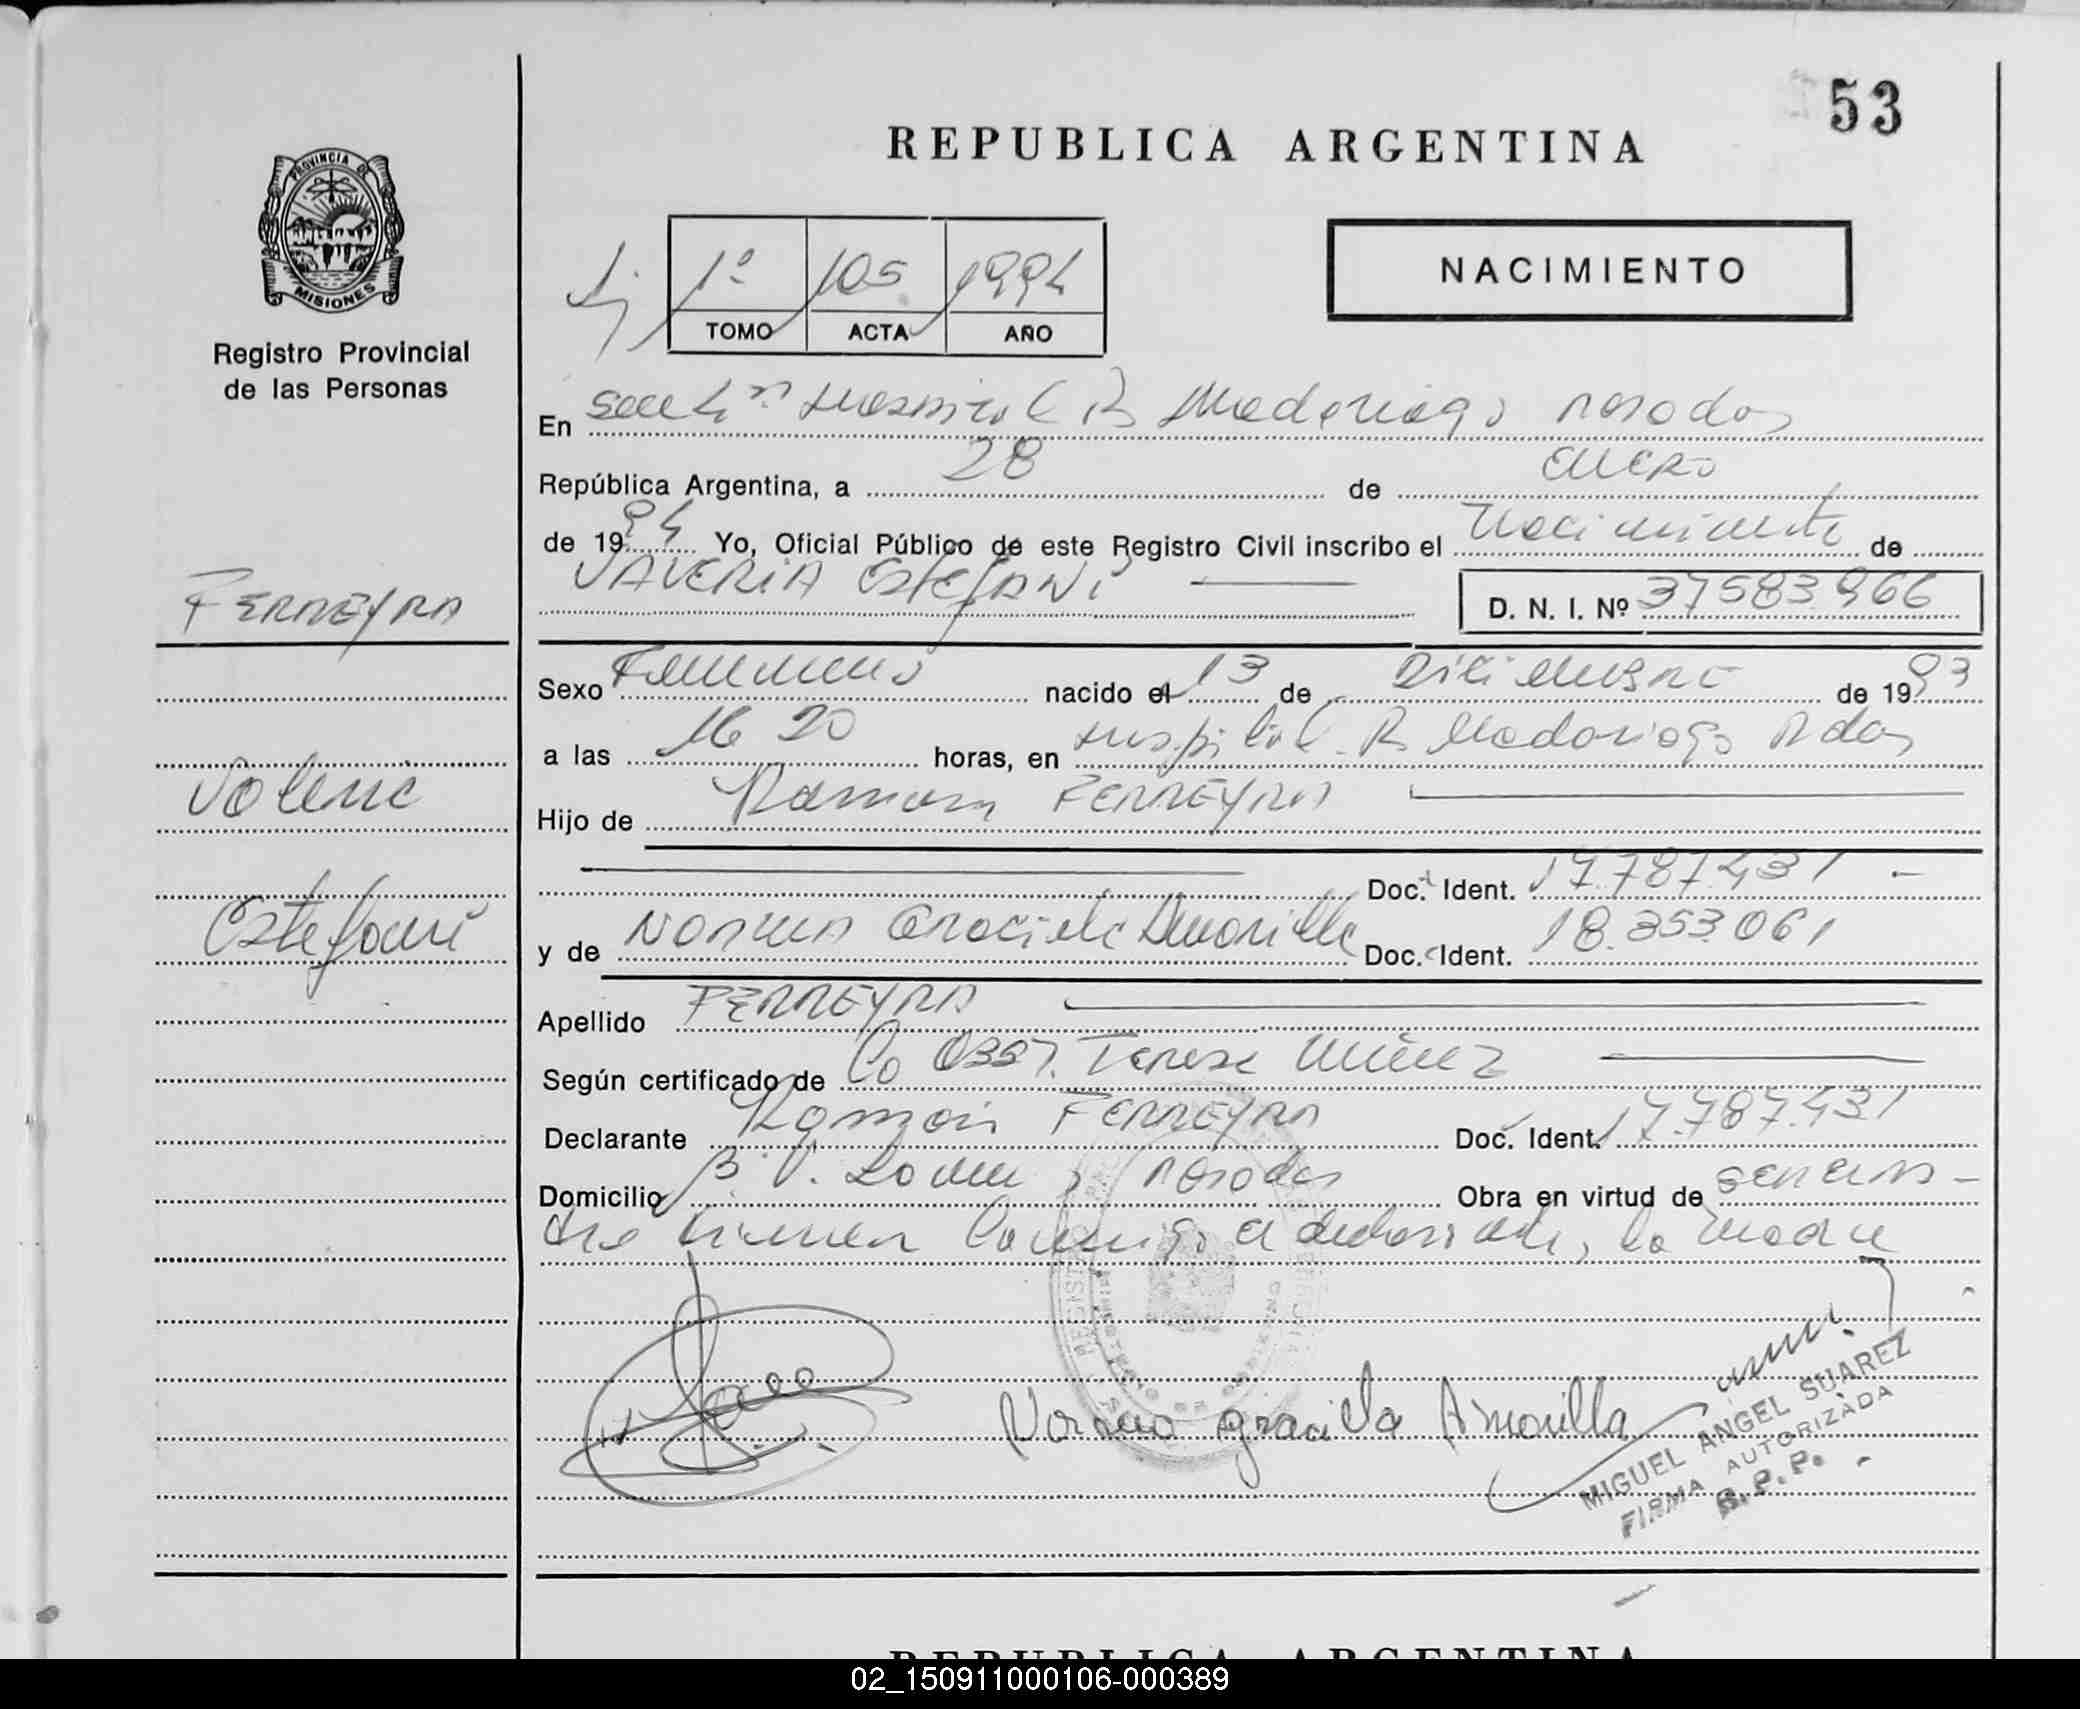 53
REPUBLICA ARGENTINA
PROVINCIA DE
MISIONES
Registro Provincial
de las Personas
NACIMIENTO
1º 105 1994
TOMO ACTA AÑO
En Secc 4ª Hospital R Madariaga Posadas
República Argentina, a 28 de Enero
de 1994 Yo, Oficial Público de este Registro Civil inscribo el Nacimiento de
VALERIA Estefani D. N. I. Nº 37583966
FERREYRA
Sexo Femenino nacido el 13 de Diciembre de 1993
a las 16 20 horas, en Hospital R Madariaga Pdas
Valeria
Hijo de Ramon FERREYRA
Doc. Ident. 17.787.431 -
Estefani
y de NORMA Graciela Amarilla Doc. Ident. 18.353.061
Apellido FERREYRA
Según certificado de Co Obst. Teresa Nuñez
Declarante Ramon FERREYRA Doc. Ident. 17.787.431
Domicilio Bº V. Posadas Obra en virtud de
firman conmigo el declarante, la madre
Norma graciela Amarilla
MIGUEL ANGEL SUAREZ
FIRMA AUTORIZADA
R.P.P.
REPUBLICA ARGENTINA
02_150911000106-000389